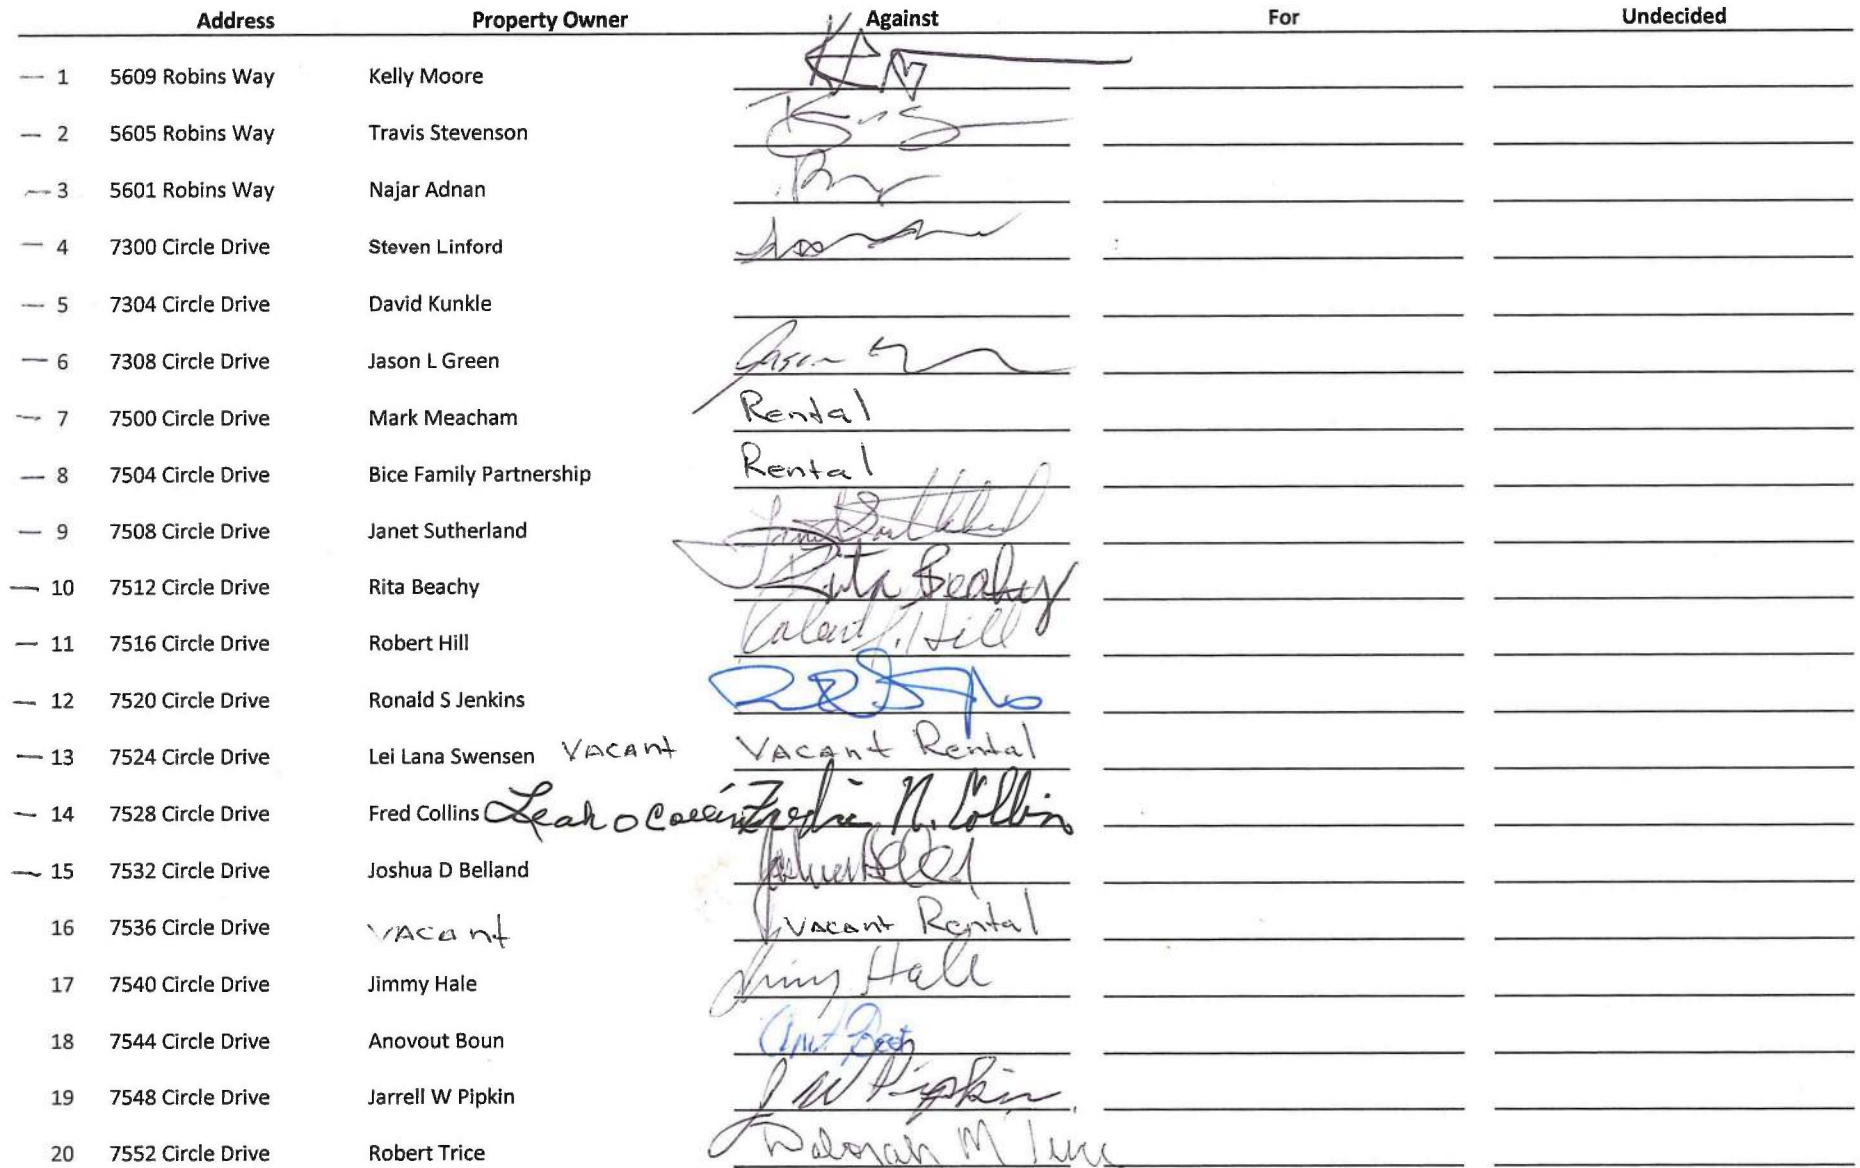 Address Property Owner Against For Undecided
1 5609 Robins Way Kelly Moore
2 5605 Robins Way Travis Stevenson
3 5601 Robins Way Najar Adnan
4 7300 Circle Drive Steven Linford
5 7304 Circle Drive David Kunkle
6 7308 Circle Drive Jason L Green Jason
7 7500 Circle Drive Mark Meacham Rental
8 7504 Circle Drive Bice Family Partnership Rental
9 7508 Circle Drive Janet Sutherland Janet Sutherland
10 7512 Circle Drive Rita Beachy Rita Beachy
11 7516 Circle Drive Robert Hill Robert J. Hill
12 7520 Circle Drive Ronald S Jenkins
13 7524 Circle Drive Lei Lana Swensen VACANT VACANT Rental
14 7528 Circle Drive Fred Collins Leah O Collins Fredric N. Collins
15 7532 Circle Drive Joshua D Belland
16 7536 Circle Drive VACANT VACANT Rental
17 7540 Circle Drive Jimmy Hale Jimmy Hale
18 7544 Circle Drive Anovout Boun
19 7548 Circle Drive Jarrell W Pipkin J W Pipkin
20 7552 Circle Drive Robert Trice Deborah M Trice